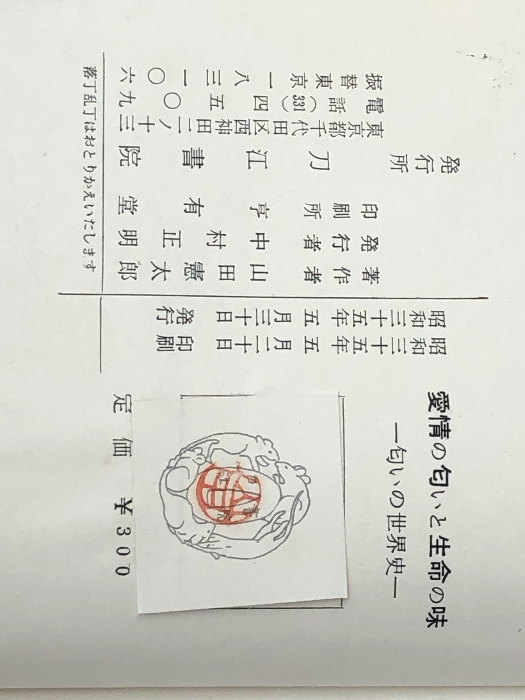 愛情の匂いと生命の味
―匂いの世界史―
定価 ¥300
昭和三十五年五月二十日 印刷
昭和三十五年五月三十日 発行
著作者 山田憲太郎
発行者 中村正明
印刷所 亨有堂
発行所 刀江書院
東京都千代田区西神田二ノ十三
電話(331)四五〇九
振替東京一八三一〇六
落丁乱丁はおとりかえいたします